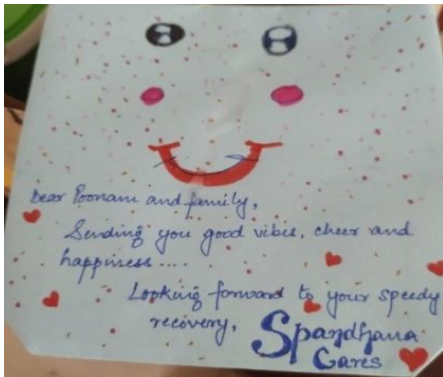 Dear Poonam and family,
Sending you good vibes, cheer and
happiness....
Looking forward to your speedy
recovery,
Spandhana
Cares